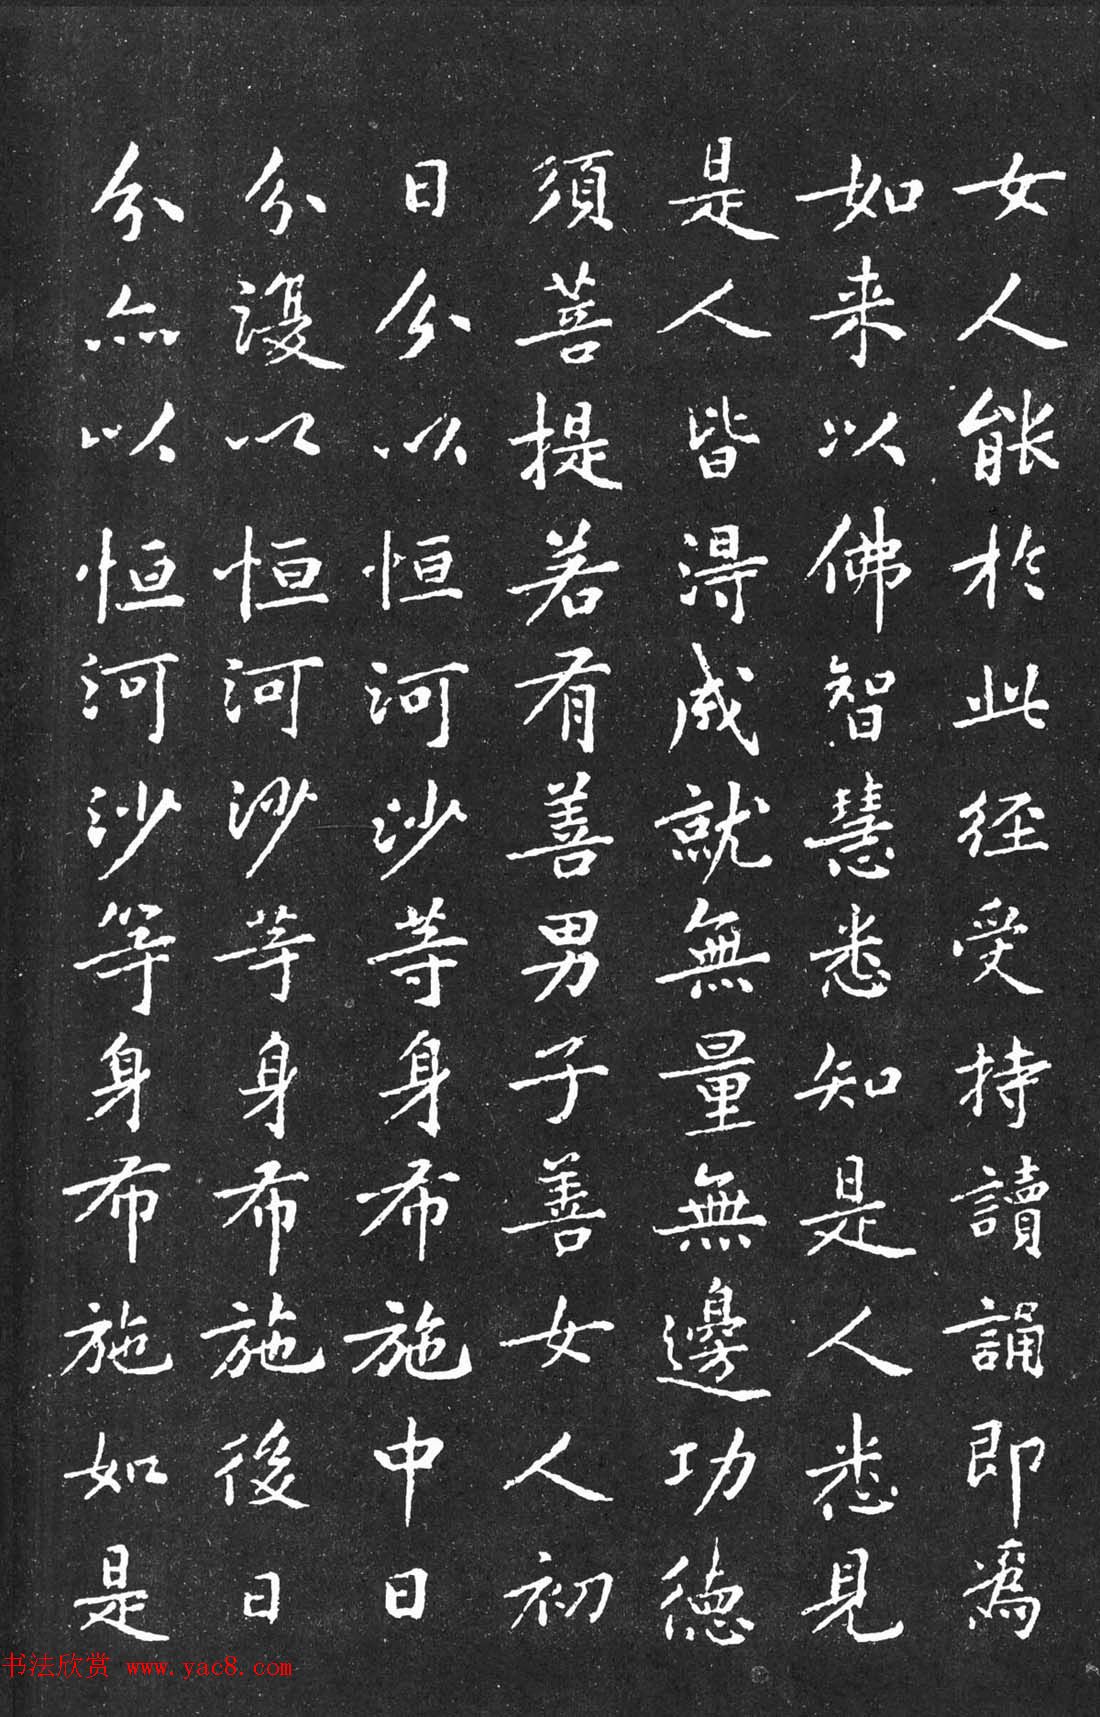 女人能於此径受持讀誦即為
如来以佛智慧悉知是人悉見
是人皆得成就無量無邊功德
須菩提若有善男子善女人初
日分以恒河沙等身布施中日
分復以恒河沙等身布施後日
分亦以恒河沙等身布施如是
书法欣赏 www.yac8.com